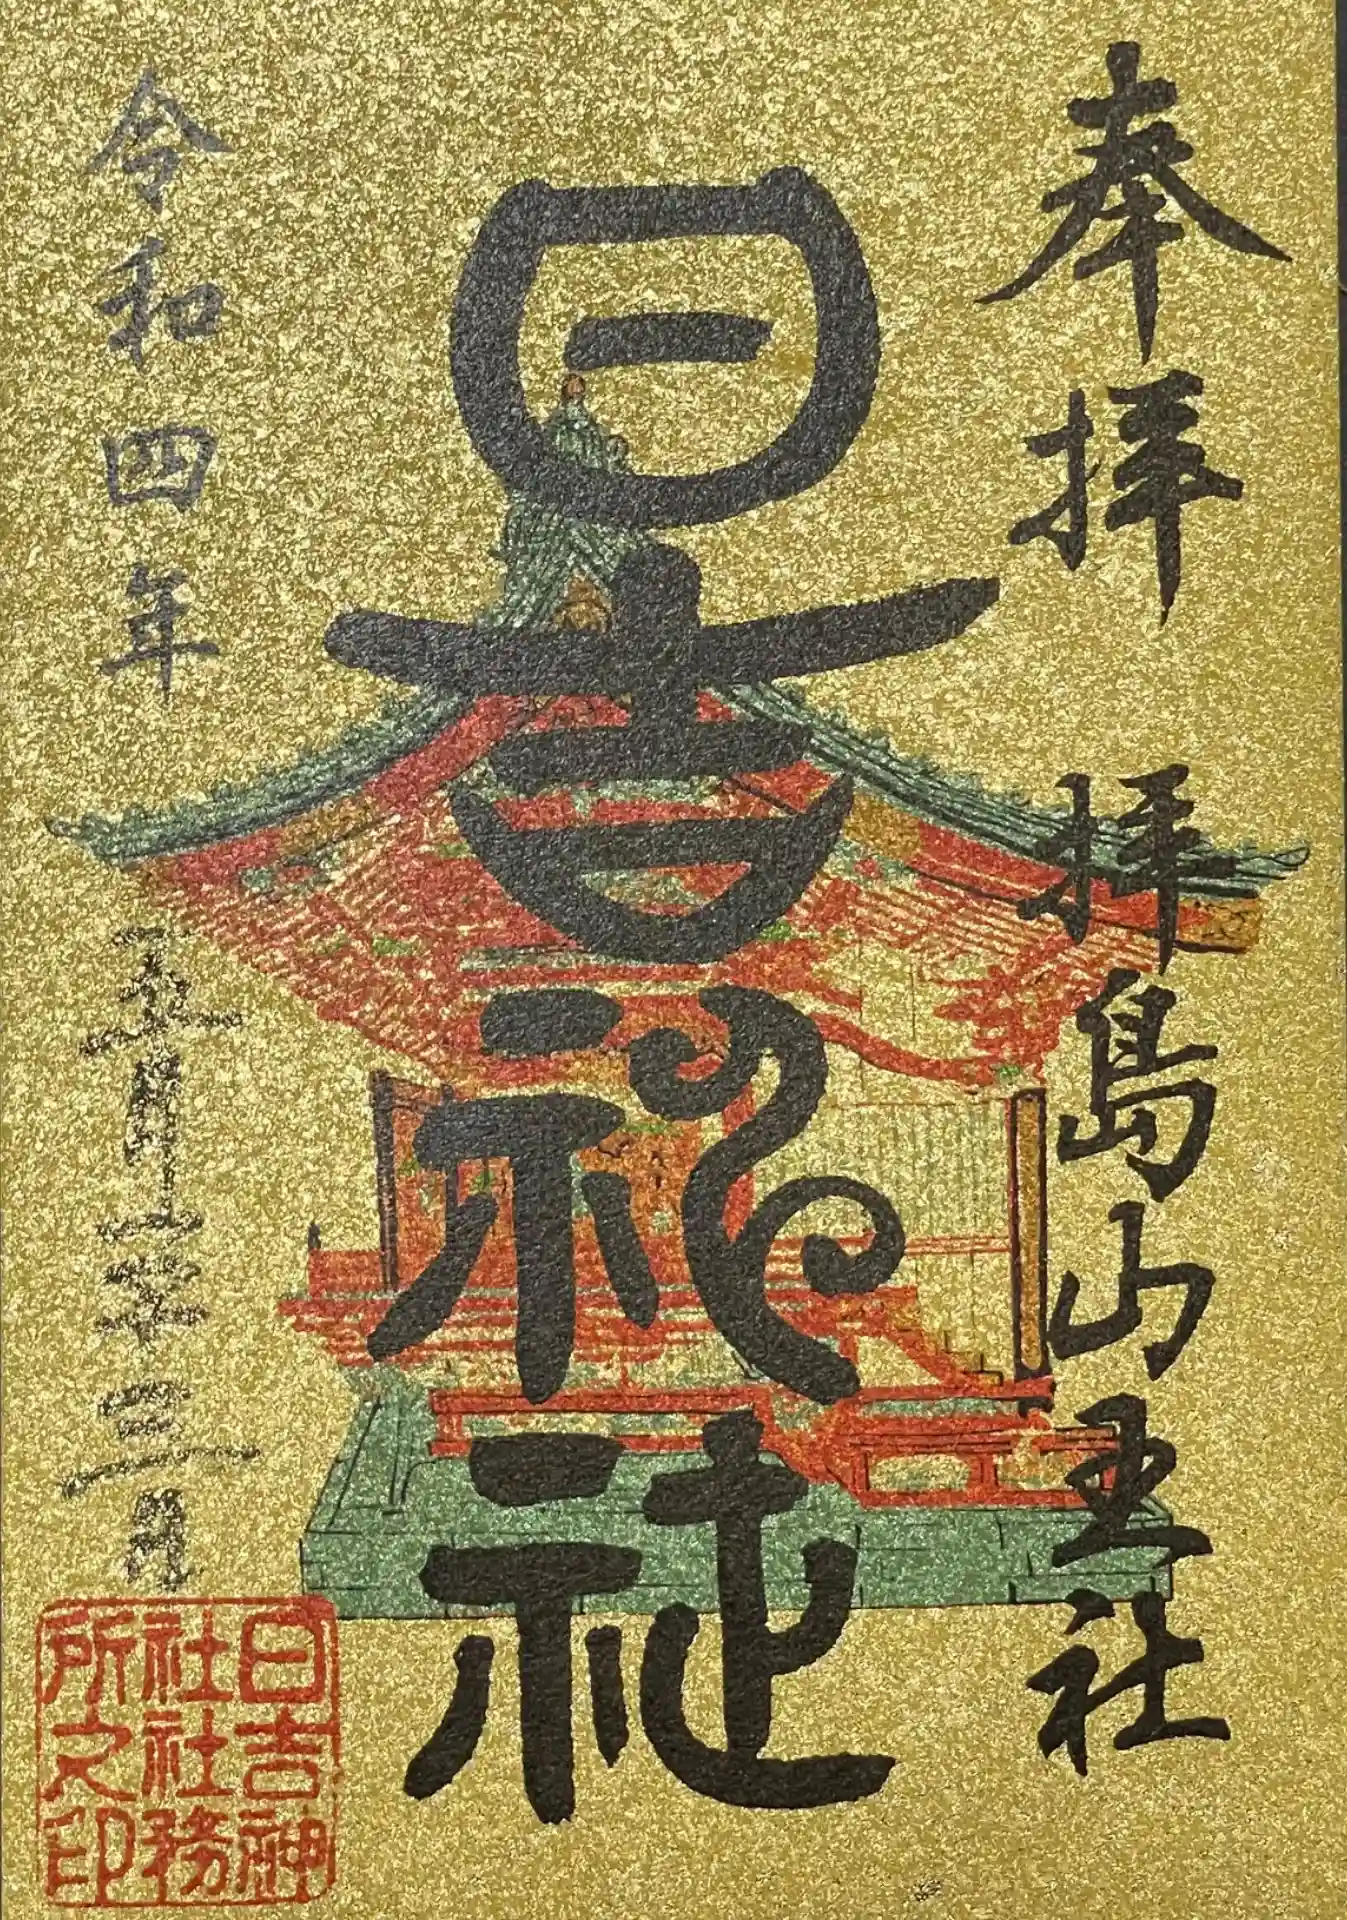 奉拝　拝島山王社
日吉神社
令和四年五月
日吉神
社社務
所之印